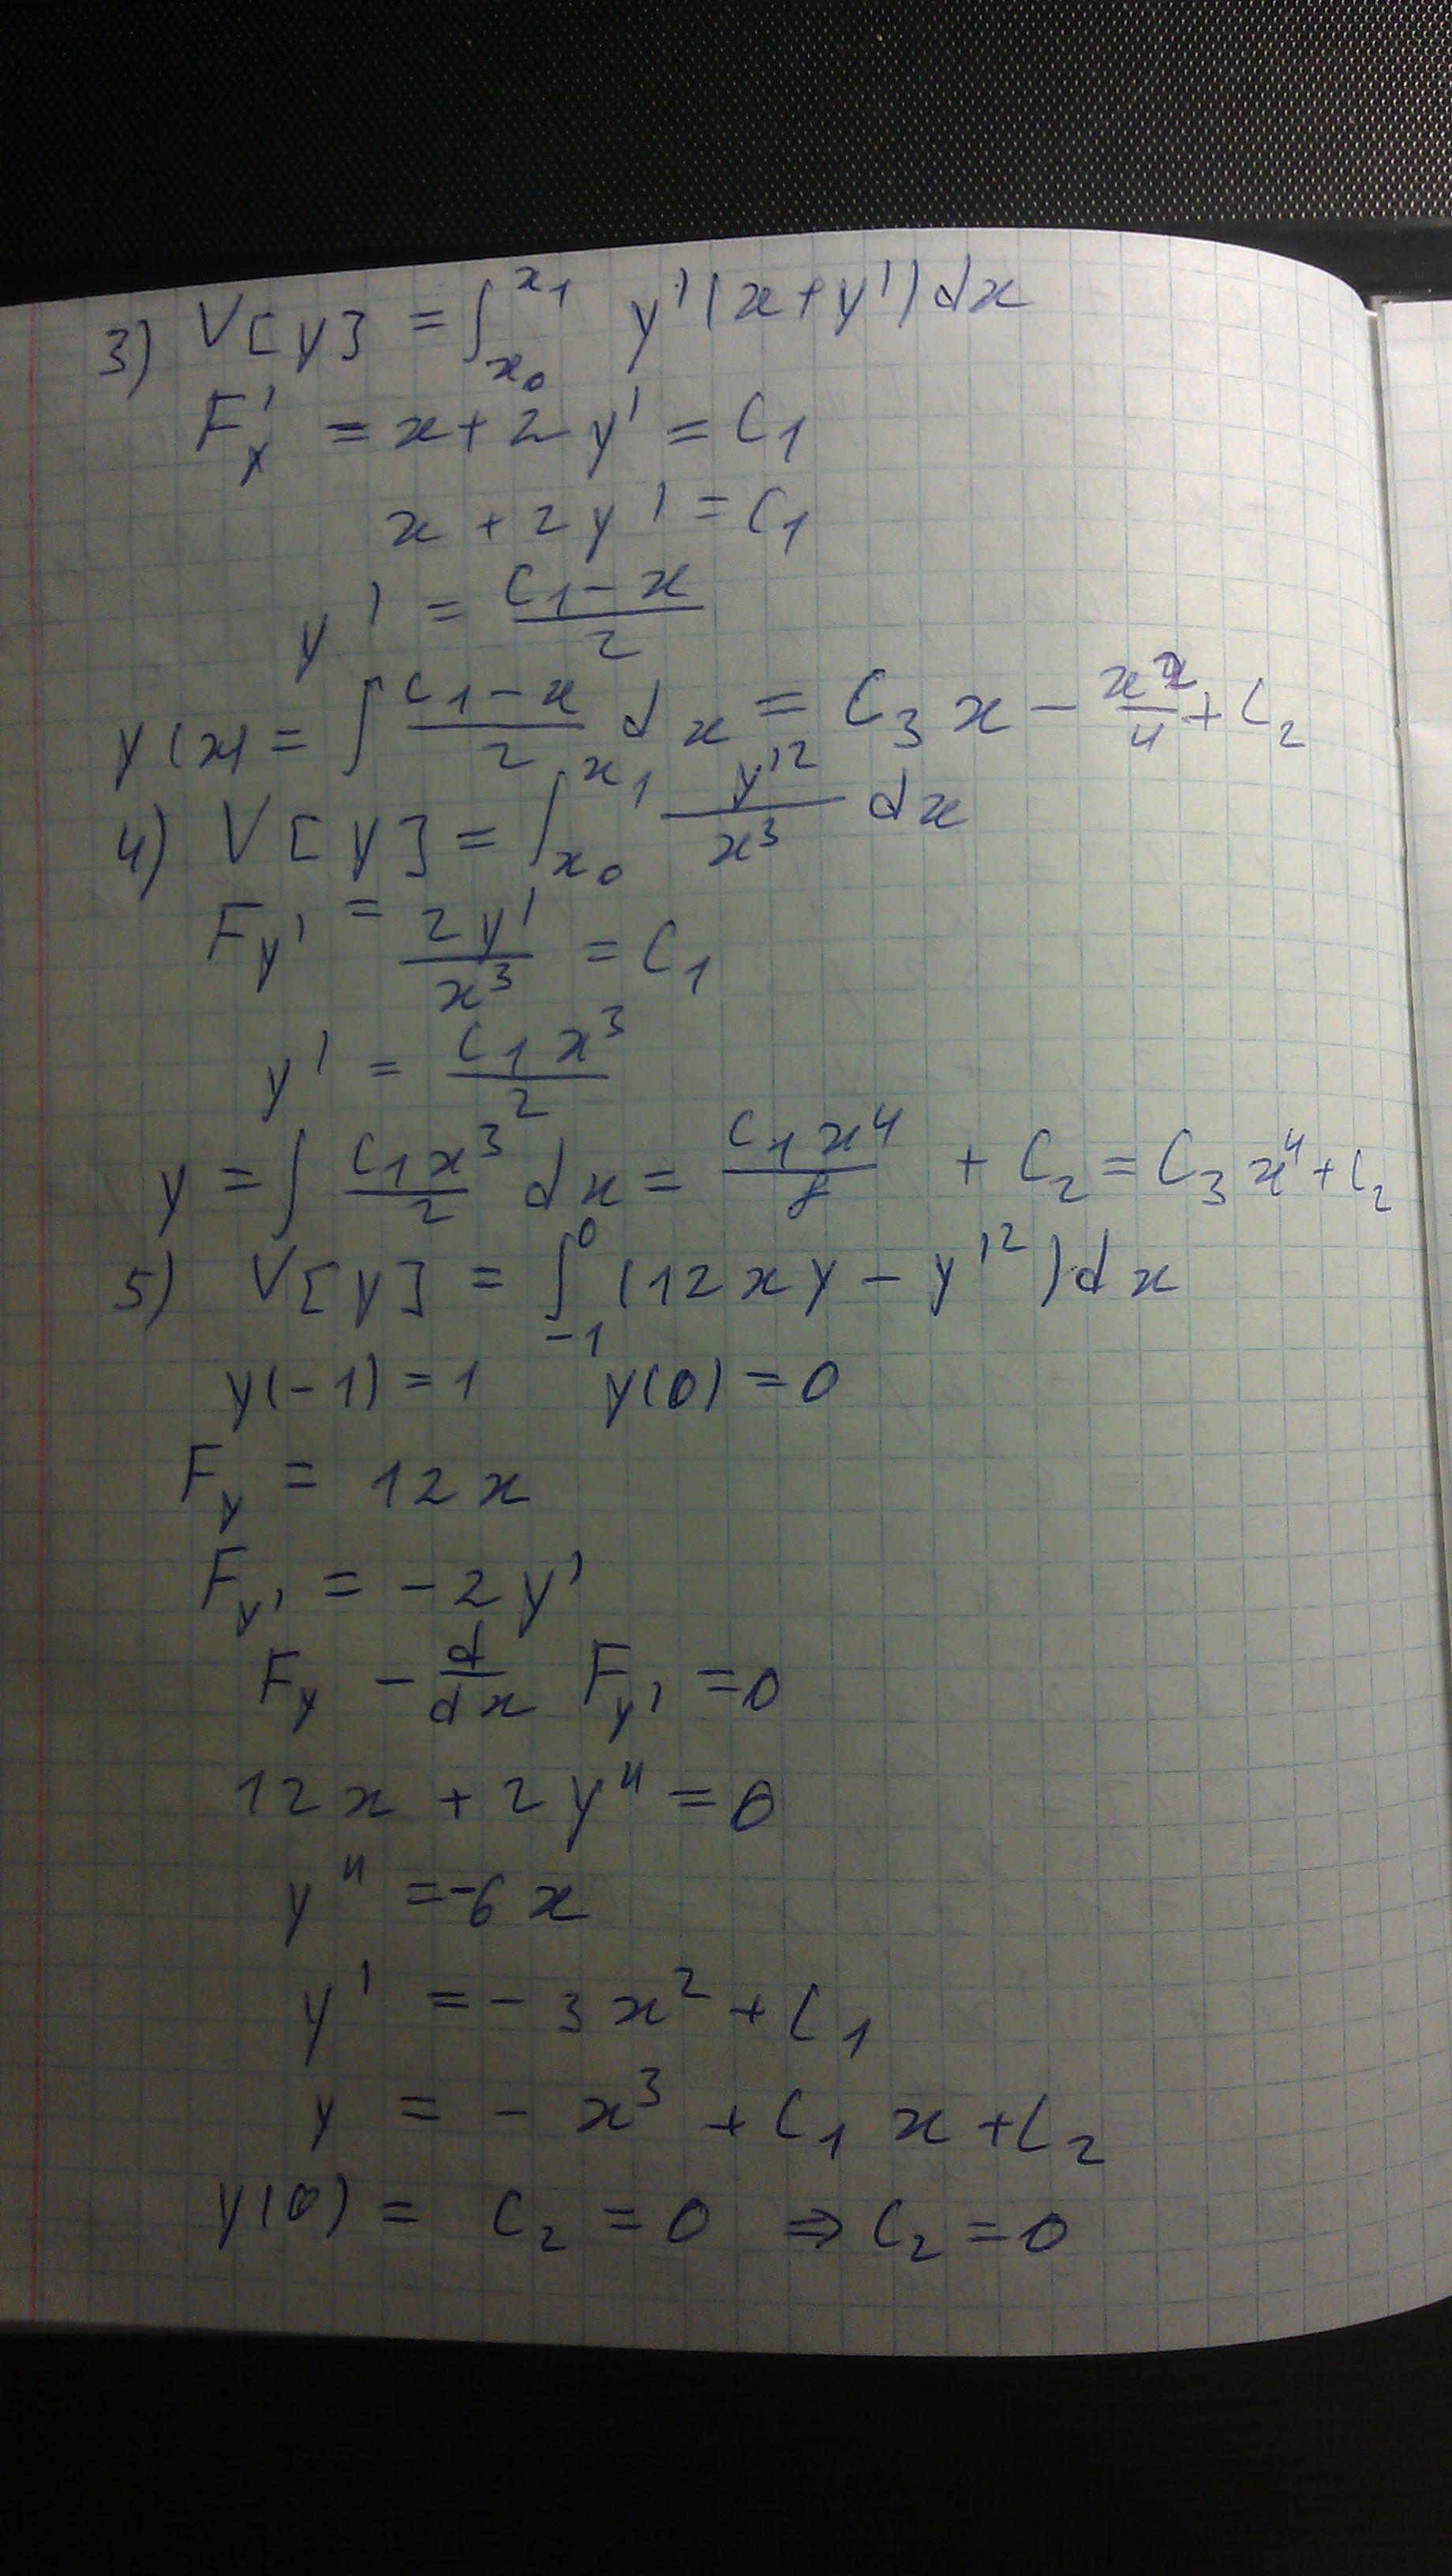 3) V[y] = ∫_{x_0}^{x_1} y'(x+y')dx
F'_y = x+2y' = C_1
x + 2y' = C_1
y' = \frac{C_1-x}{2}
y(x) = ∫ \frac{C_1-x}{2} dx = C_3 x - \frac{x^2}{4} + C_2
4) V[y] = ∫_{x_0}^{x_1} \frac{y'^2}{x^3} dx
F_{y'} = \frac{2y'}{x^3} = C_1
y' = \frac{C_1 x^3}{2}
y = ∫ \frac{C_1 x^3}{2} dx = \frac{C_1 x^4}{8} + C_2 = C_3 x^4 + C_2
5) V[y] = ∫_{-1}^{0} (12xy - y'^2)dx
y(-1) = 1 y(0) = 0
F_y = 12x
F_{y'} = -2y'
F_y - \frac{d}{dx} F_{y'} = 0
12x + 2y'' = 0
y'' = -6x
y' = -3x^2 + C_1
y = -x^3 + C_1 x + C_2
y(0) = C_2 = 0 ⇒ C_2 = 0